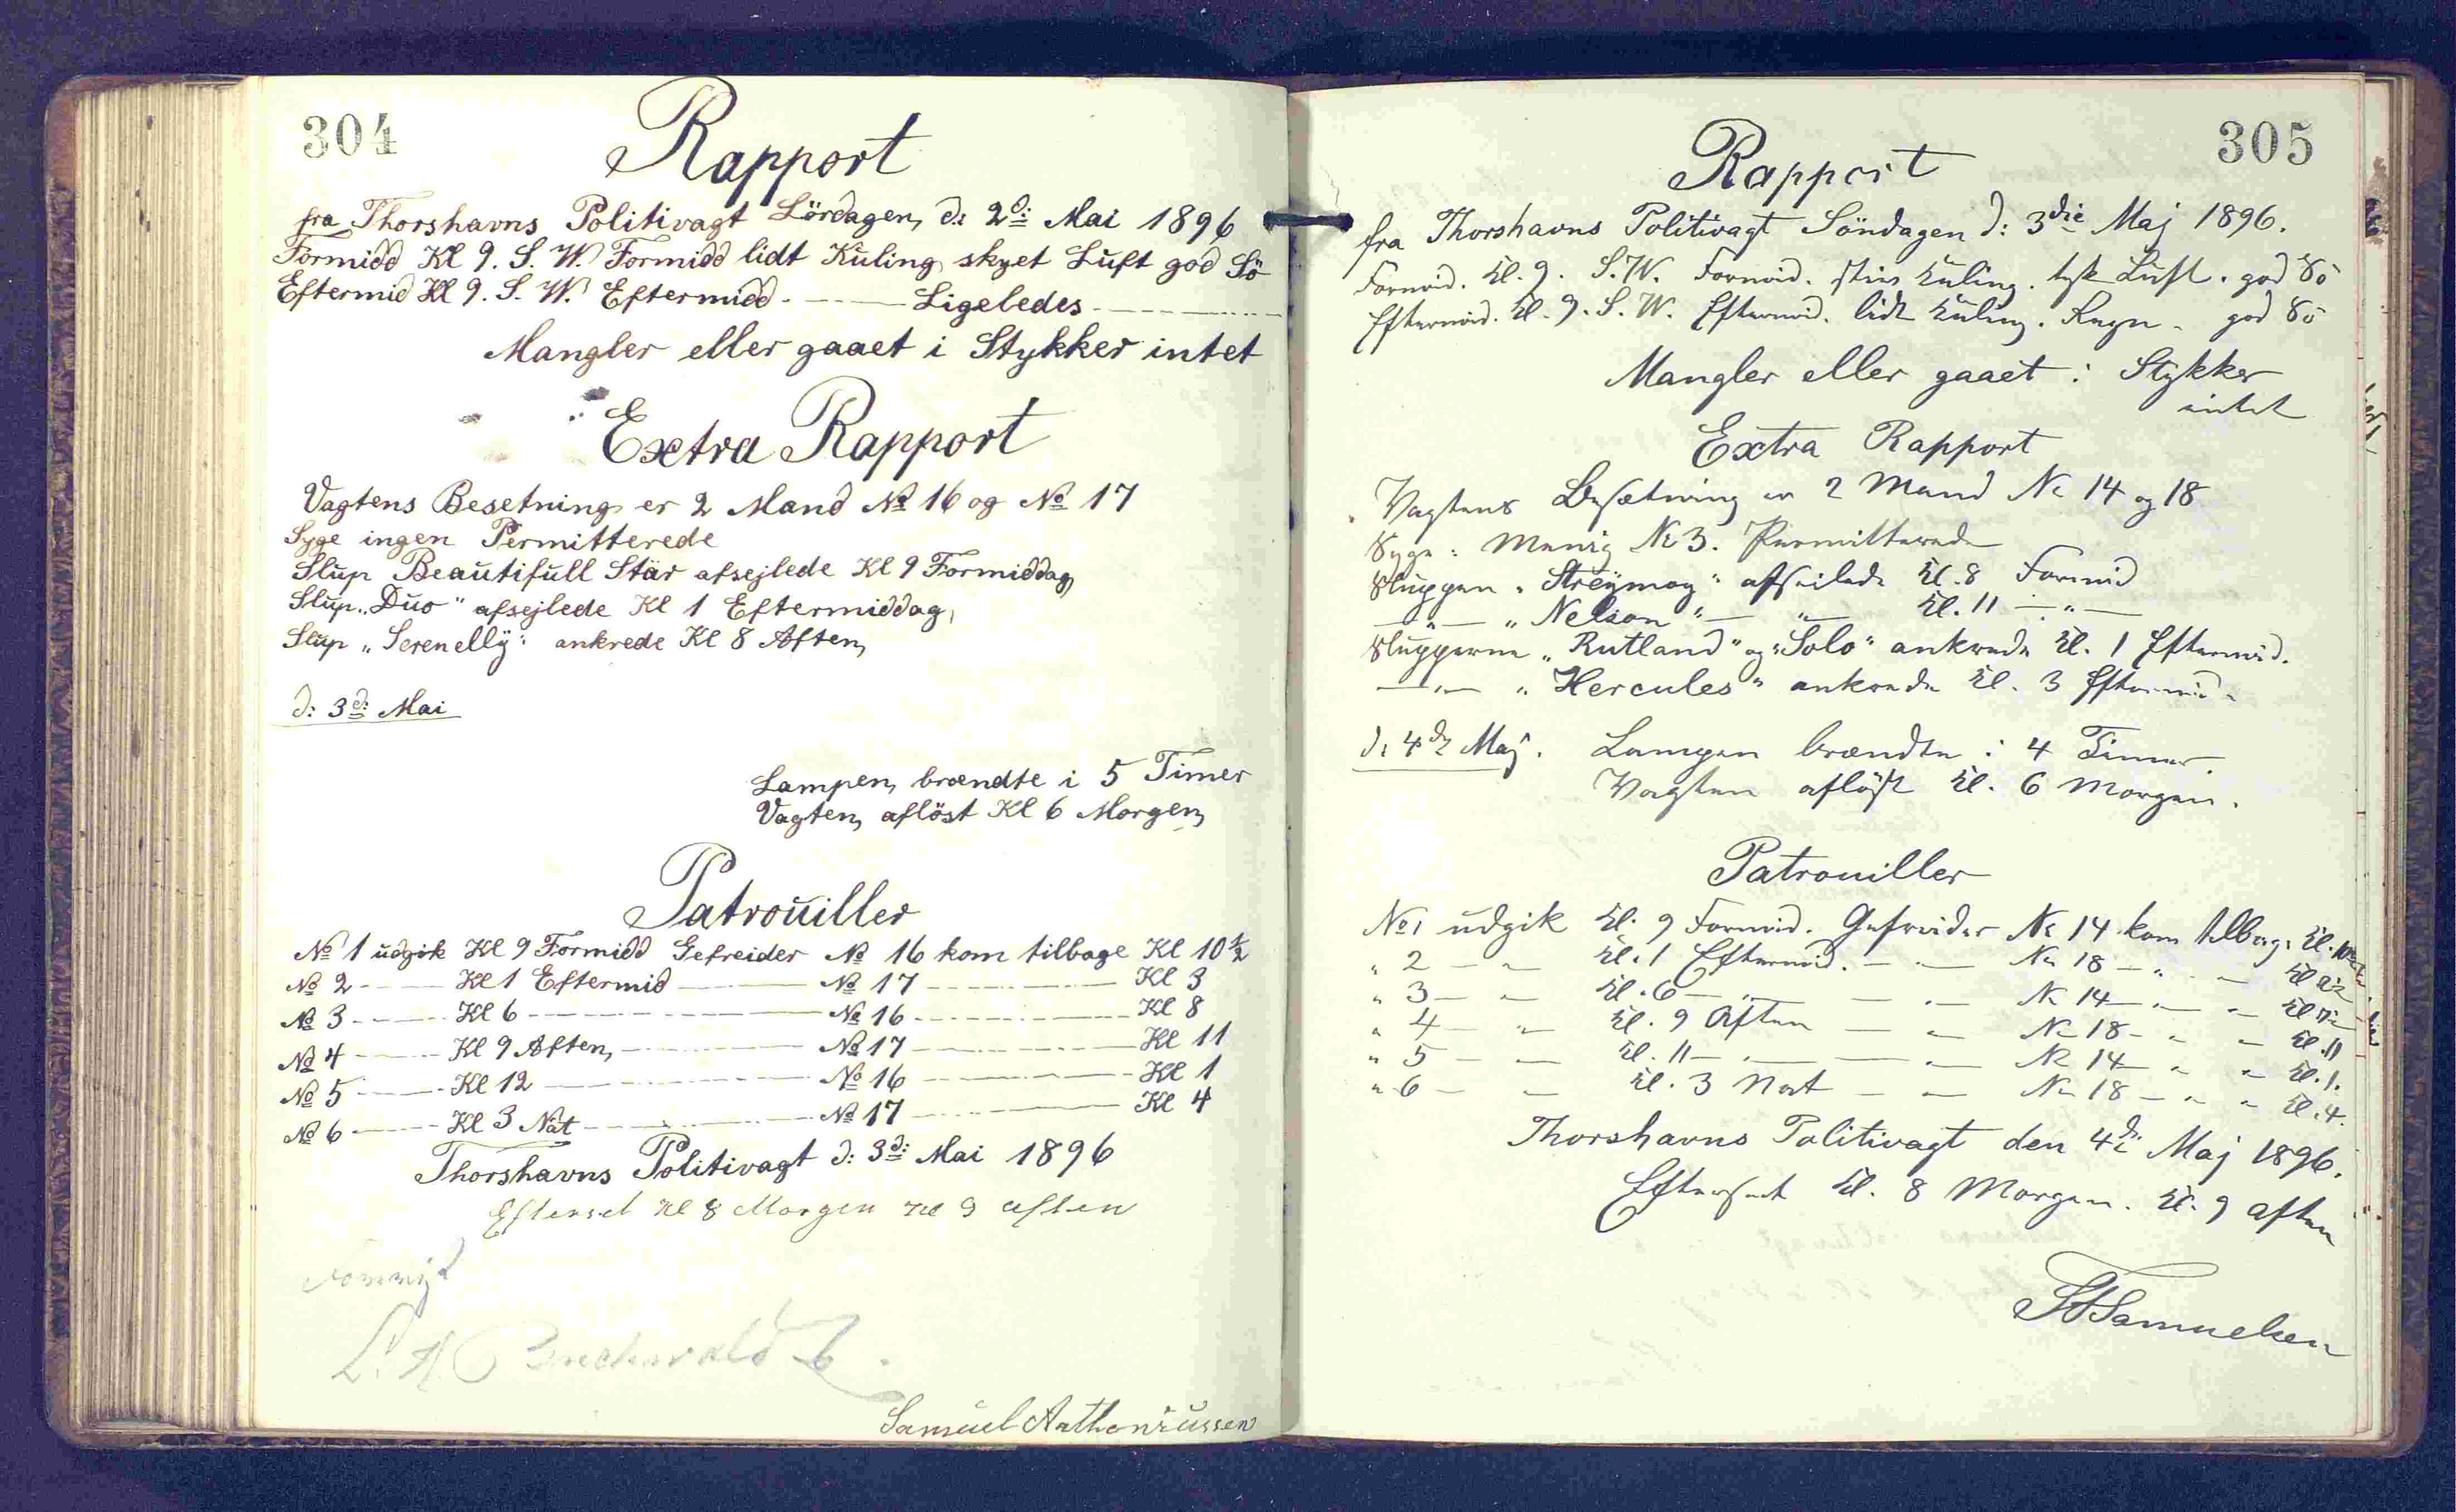 304
Rapport
fra Thorshavns Politivagt Lördagen, d: 2d: Mai 1896
Formidd Kl 9. S. W. Formidd lidt Kuling skyet Luft god Sö
Eftermid Kl 9. S. W. Eftermidd - — Ligeledes - — —
Mangler eller gaaet i Stykker intet
Extra Rapport
Vagtens Besetning er 2 Mand No 16 og No 17
Syge ingen Permitterede
Slup Beautifull Stär afsejlede Kl 9 Formiddag
Slup „Duo" afsejlede Kl 1 Eftermiddag,
Slup „Serenelly" ankrede Kl 8 Aften,
d: 3d: Mai
Lampen, brændte i 5 Timer
Vagten, aflöst Kl 6 Morgen,
Patrouiller
No 1 udgik Kl 9 Formidd Gefreider No 16 kom tilbage Kl 10 1/2
No 2 - — Kl 1 Eftermid — No 17 - — Kl 3
No 3 - — Kl 6 - — No 16 - — Kl 8
No 4 - — Kl 9 Aften, — No 17 — Kl 11
No 5 - — Kl 12 — No 16 — Kl 1
No 6 - — Kl 3 Nat — No 17 — Kl 4
Thorshavns Politivagt d: 3d: Mai 1896
Efterset Kl 8 Morgen Kl 9 aften
L. A. Buchwald
Samuel
305
Rapport
fra Thorshavns Politivagt Söndagen d: 3die Maj 1896.
Formid. Kl. 9. S.W. Formid. stiv Kuling. tyk Luft. god Sö
Eftermid. Kl. 9. S. W. Eftermid. lidt Kuling. Regn - god Sö
Mangler eller gaaet i Stykker
intet
Extra Rapport
Vagtens Besætning er 2 Mand No 14 og 18
Syge: Menig No 3. Permitterede
Sluppen „Streymoy" afseilede Kl. 8 Formid
— „ — „Nelson" — „ — Kl. 11 — „ —
Slupperne „Rutland" og „Solo" ankrede Kl. 1 Eftermid.
— „ — „Hercules" ankrede Kl. 3 Eftermid.
d: 4de Maj. Lampen brændte i 4 Timer.
Vagten aflöst Kl. 6 Morgen.
Patrouiller
No 1 udgik Kl. 9 Formid. Gefreider No 14 kom tilbage Kl.
„ 2 — „ Kl. 1 Eftermid. — „ — No 18 — „ — Kl
„ 3 — „ Kl. 6 — „ — „ — No 14 — „ — Kl
„ 4 — „ Kl. 9 Aften — „ No 18 - „ — Kl. 11
„ 5 — „ Kl. 11 — „ — „ — No 14 — „ „ Kl. 1.
„ 6 — „ Kl. 3 Nat — „ — No 18 — „ „ Kl. 4.
Thorshavns Politivagt den 4de Maj 1896.
Efterset Kl. 8 Morgen. Kl. 9 aften
Samuelsen